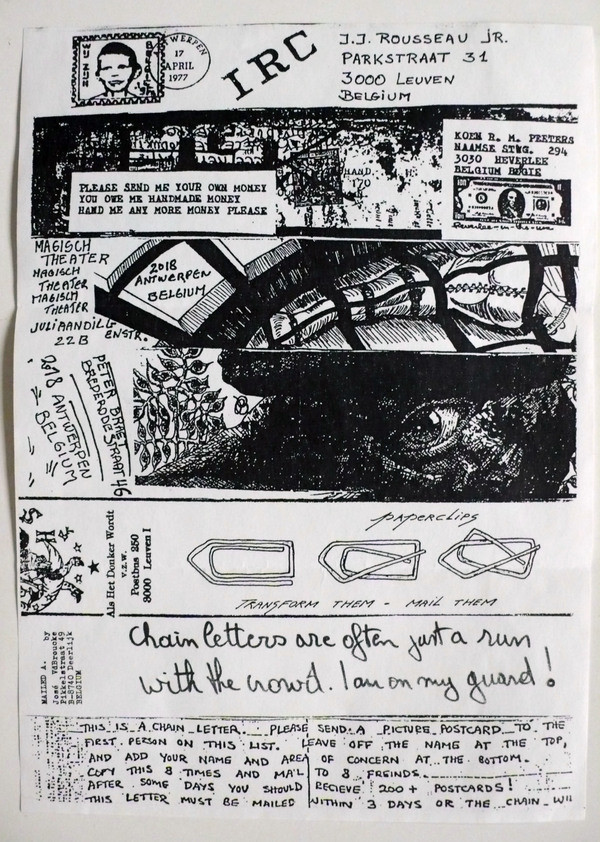 WU ZUN
BELGIE
WERPEN
17
APRIL
1977
IRC
J.J. ROUSSEAU JR.
PARKSTRAAT 31
3000 LEUVEN
BELGIUM
KOEN R. M. PEETERS
NAAMSE STWG. 294
3030 HEVERLEE
BELGIUM BEGIE
PLEASE SEND ME YOUR OWN MONEY
YOU OWE ME HANDMADE MONEY
HAND ME ANY MORE MONEY PLEASE
HAND.
170
100
MAGISCH
THEATER
MAGISCH
THEATER
MAGISCH
THEATER
JULIAANDILLE
22B ENSTR.
2018
ANTWERPEN
BELGIUM
PETER
BREDERODESTRAAT 46
2018 ANTWERPEN
= BELGIUM =
Als Het Donker Wordt
v.z.w.
Postbus 250
3000 Leuven I
paperclips
TRANSFORM THEM - MAIL THEM
MAILED A. by
José VdBroucke
Pikkelstraat 49
B-8740 Deerlijk
BELGIUM
Chain letters are often just a run
with the crowd. I am on my guard!
THIS IS A CHAIN LETTER. PLEASE SEND A PICTURE POSTCARD TO THE
FIRST PERSON ON THIS LIST. LEAVE OFF THE NAME AT THE TOP,
AND ADD YOUR NAME AND AREA OF CONCERN AT THE BOTTOM.
COPY THIS 8 TIMES AND MAIL TO 8 FREINDS.
AFTER SOME DAYS YOU SHOULD RECIEVE 200+ POSTCARDS!
THIS LETTER MUST BE MAILED WITHIN 3 DAYS OR THE CHAIN WII